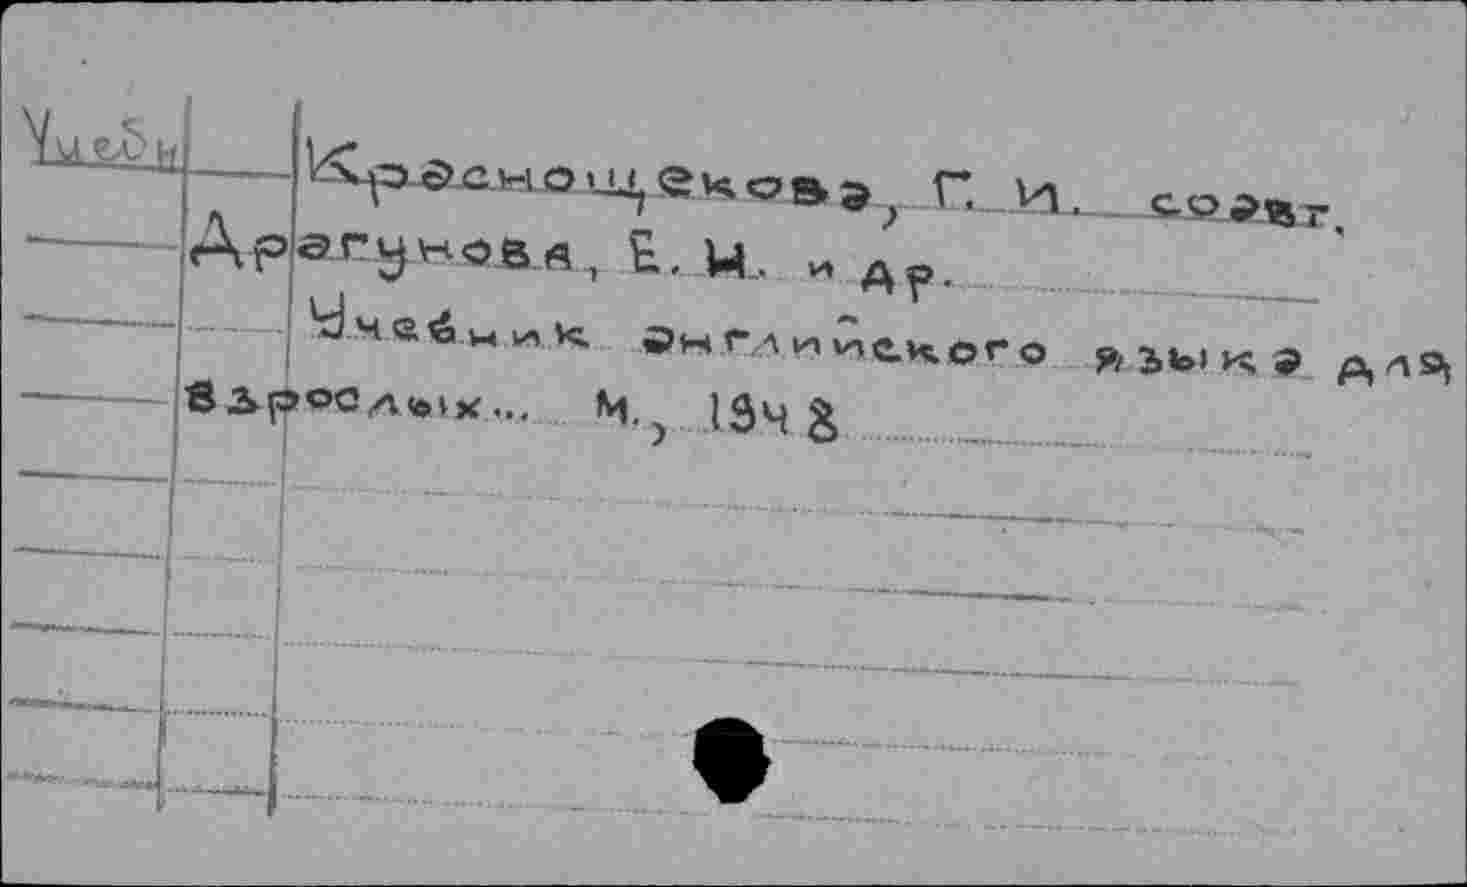 Учебн
Краснощекова, Г. И. соавт.
Драгунова, Е. И. и др.
Учебник английского языка для
взрослых... М., 1948